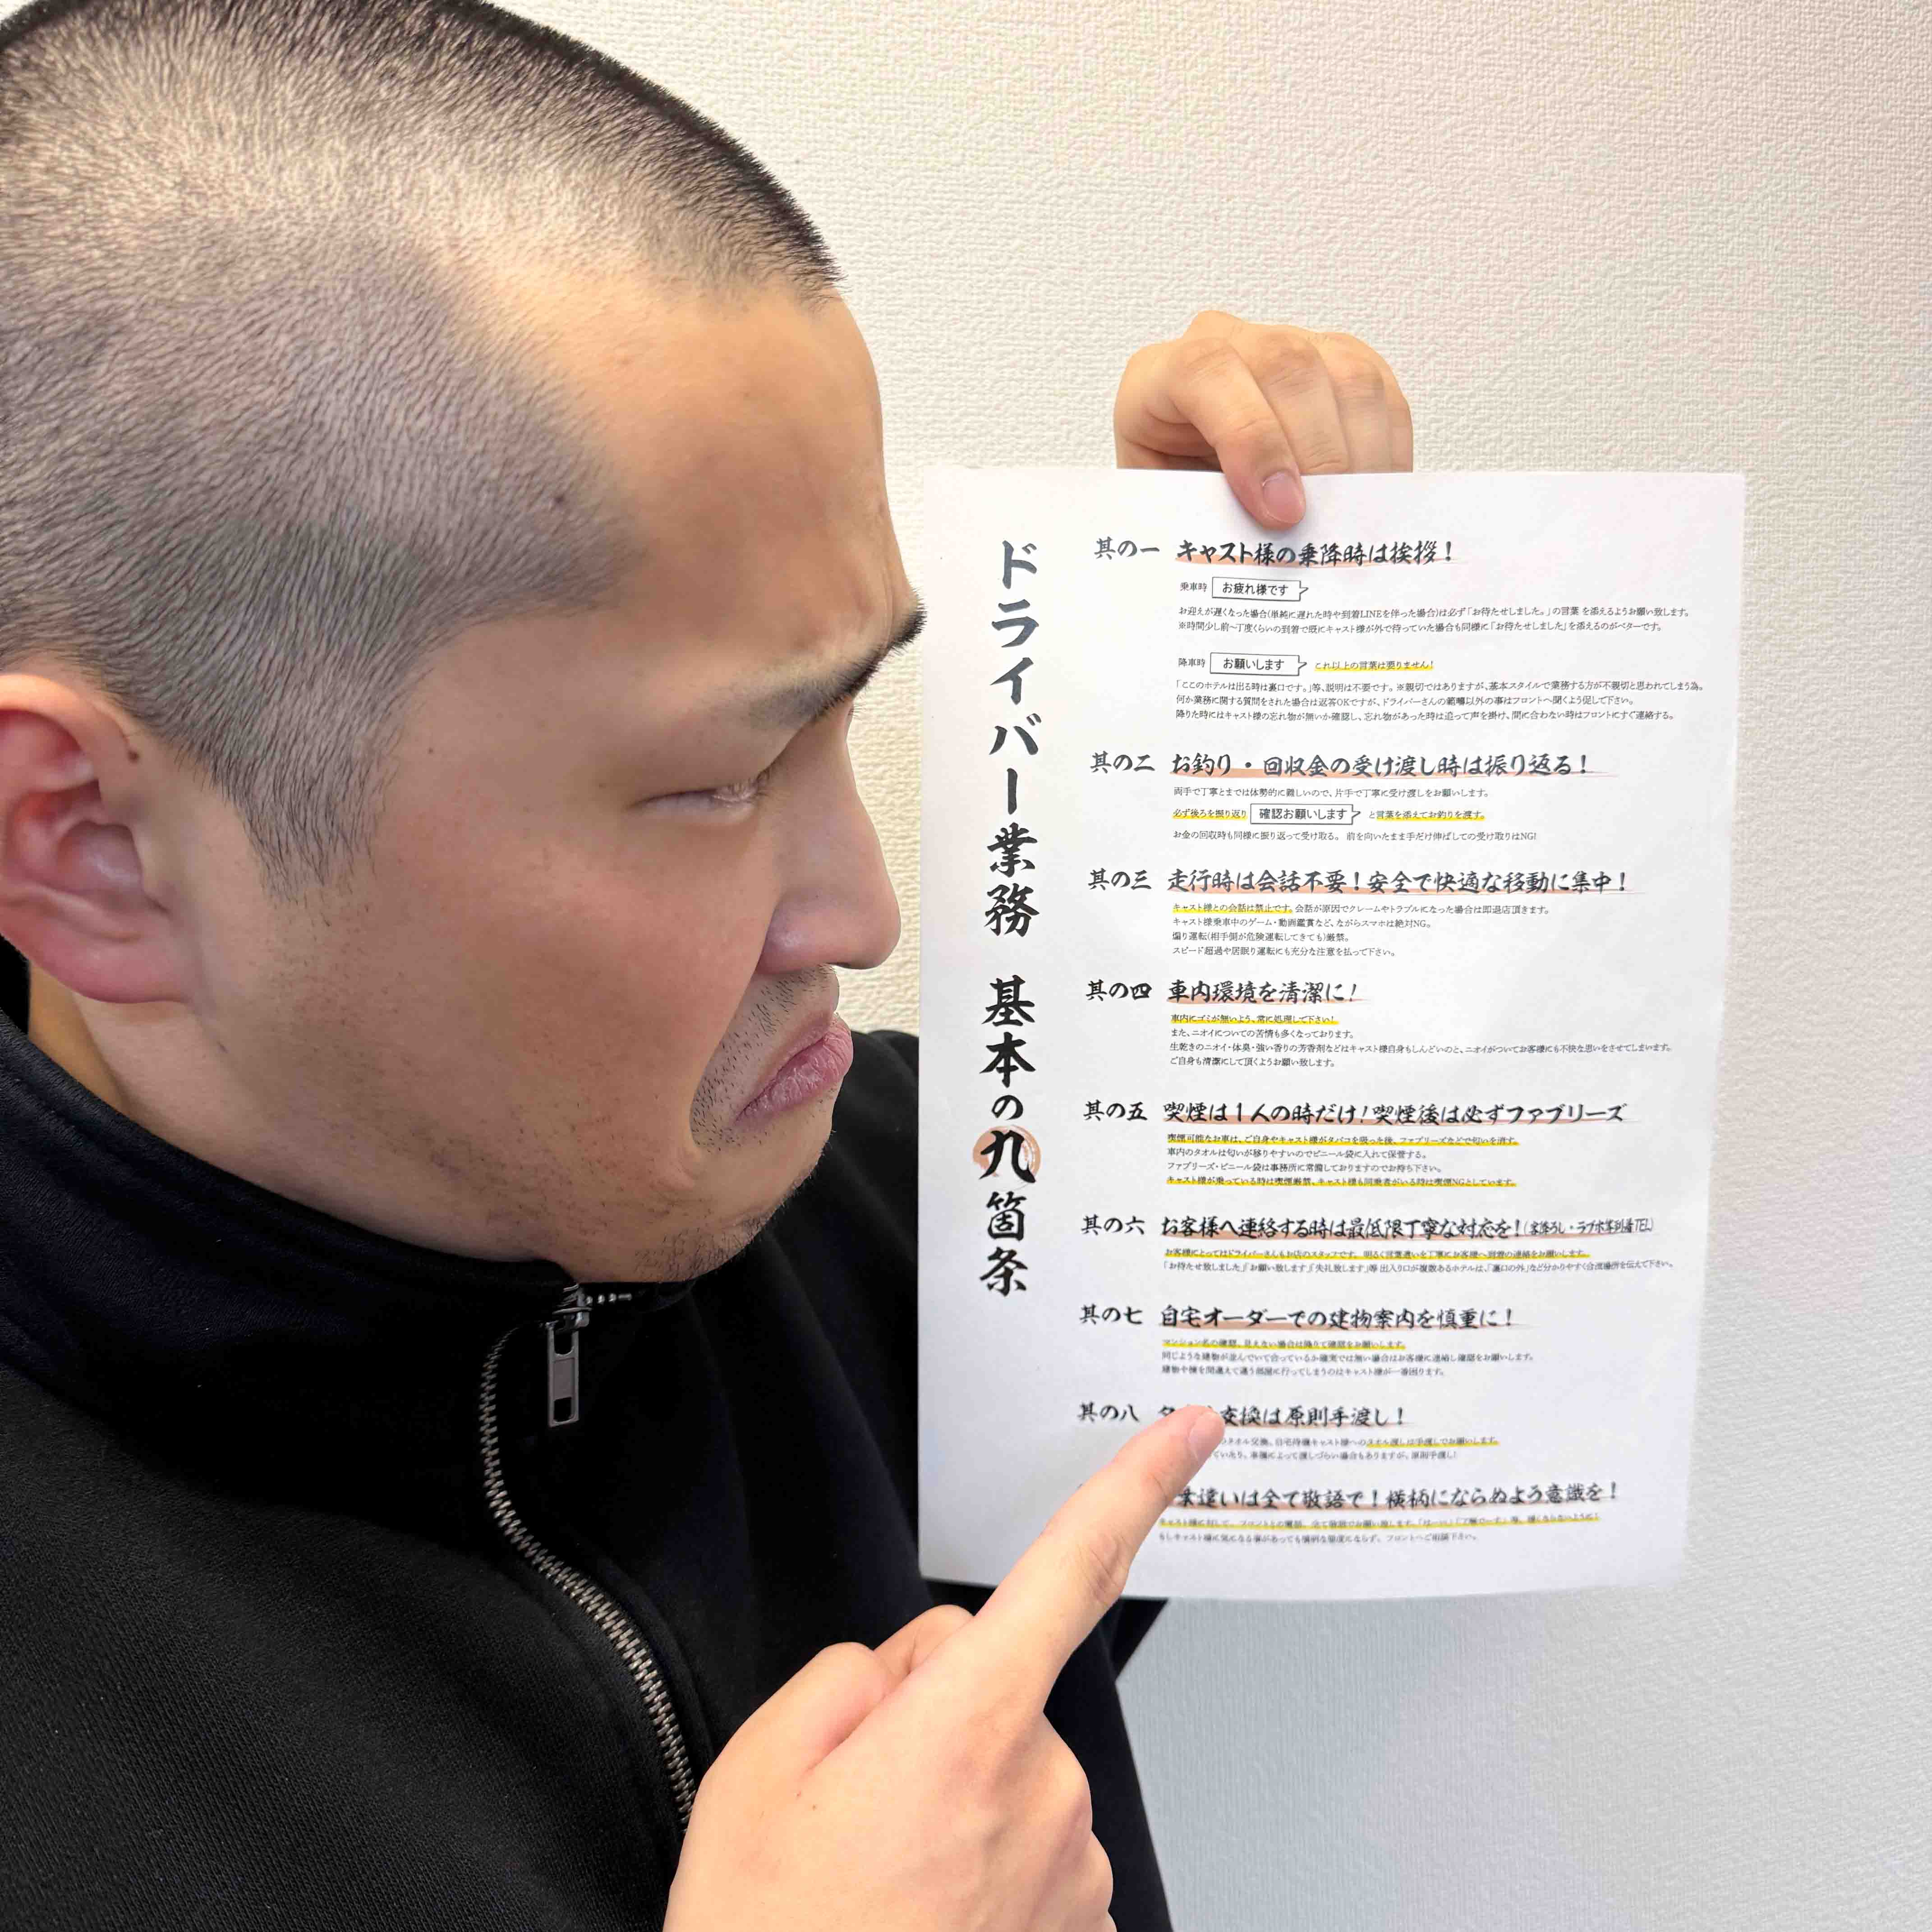 ドライバー業務 基本の九箇条
其の一 キャスト様の乗降時は挨拶！
乗車時 お疲れ様です
お迎えが遅くなった場合(単純に遅れた時や到着LINEを伴った場合)は必ず「お待たせしました。」の言葉 を添えるようお願い致します。
※時間少し前〜丁度くらいの到着で既にキャスト様が外で待っていた場合も同様に「お待たせしました」を添えるのがベターです。
降車時 お願いします これ以上の言葉は要りません！
「ここのホテルは出る時は裏口です。」等、説明は不要です。※親切ではありますが、基本スタイルで業務する方が不親切と思われてしまう為。
何か業務に関する質問をされた場合は返答OKですが、ドライバーさんの範疇以外の事はフロントへ聞くよう促して下さい。
降りた時にはキャスト様の忘れ物が無いか確認し、忘れ物があった時は追って声を掛け、間に合わない時はフロントにすぐ連絡する。
其の二 お釣り・回収金の受け渡し時は振り返る！
両手で丁寧とまでは体勢的に難しいので、片手で丁寧に受け渡しをお願いします。
必ず後ろを振り返り 確認お願いします と言葉を添えてお釣りを渡す。
お金の回収時も同様に振り返って受け取る。 前を向いたまま手だけ伸ばしての受け取りはNG!
其の三 走行時は会話不要！安全で快適な移動に集中！
キャスト様との会話は禁止です。会話が原因でクレームやトラブルになった場合は即退店頂きます。
キャスト様乗車中のゲーム・動画鑑賞など、ながらスマホは絶対NG。
煽り運転(相手側が危険運転してきても)厳禁。
スピード超過や居眠り運転にも充分な注意を払って下さい。
其の四 車内環境を清潔に！
車内にゴミが無いよう、常に処理して下さい！
また、ニオイについての苦情も多くなっております。
生乾きのニオイ・体臭・強い香りの芳香剤などはキャスト様自身もしんどいのと、ニオイがついてお客様にも不快な思いをさせてしまいます。
ご自身も清潔にして頂くようお願い致します。
其の五 喫煙は1人の時だけ！喫煙後は必ずファブリーズ
喫煙可能なお車は、ご自身やキャスト様がタバコを吸った後、ファブリーズなどで匂いを消す。
車内のタオルは匂いが移りやすいのでビニール袋に入れて保管する。
ファブリーズ・ビニール袋は事務所に常備しておりますのでお持ち下さい。
キャスト様が乗っている時は喫煙厳禁、キャスト様も同乗者がいる時は喫煙NGとしています。
其の六 お客様へ連絡する時は最低限丁寧な対応を！
お客様にとってはドライバーさんもお店のスタッフです。明るく言葉遣いを丁寧にお客様へ到着の連絡をお願いします。
「お待たせ致しました」「お願い致します」「失礼致します」等 出入り口が複数あるホテルは、「裏口の外」など分かりやすく合流場所を伝えて下さい。
其の七 自宅オーダーでの建物案内を慎重に！
マンション名の確認、見えない場合は降りて確認をお願いします。
同じような建物が並んでいて合っているか確実では無い場合はお客様に連絡し確認をお願いします。
建物や棟を間違えて違う部屋に行ってしまうのはキャスト様が一番困ります。
其の八 交換は原則手渡し！
のタオル交換、自宅待機キャスト様へのタオル渡しは手渡しでお願いします。
事情によって渡しづらい場合もありますが、原則手渡し！
葉遣いは全て敬語で！横柄にならぬよう意識を！